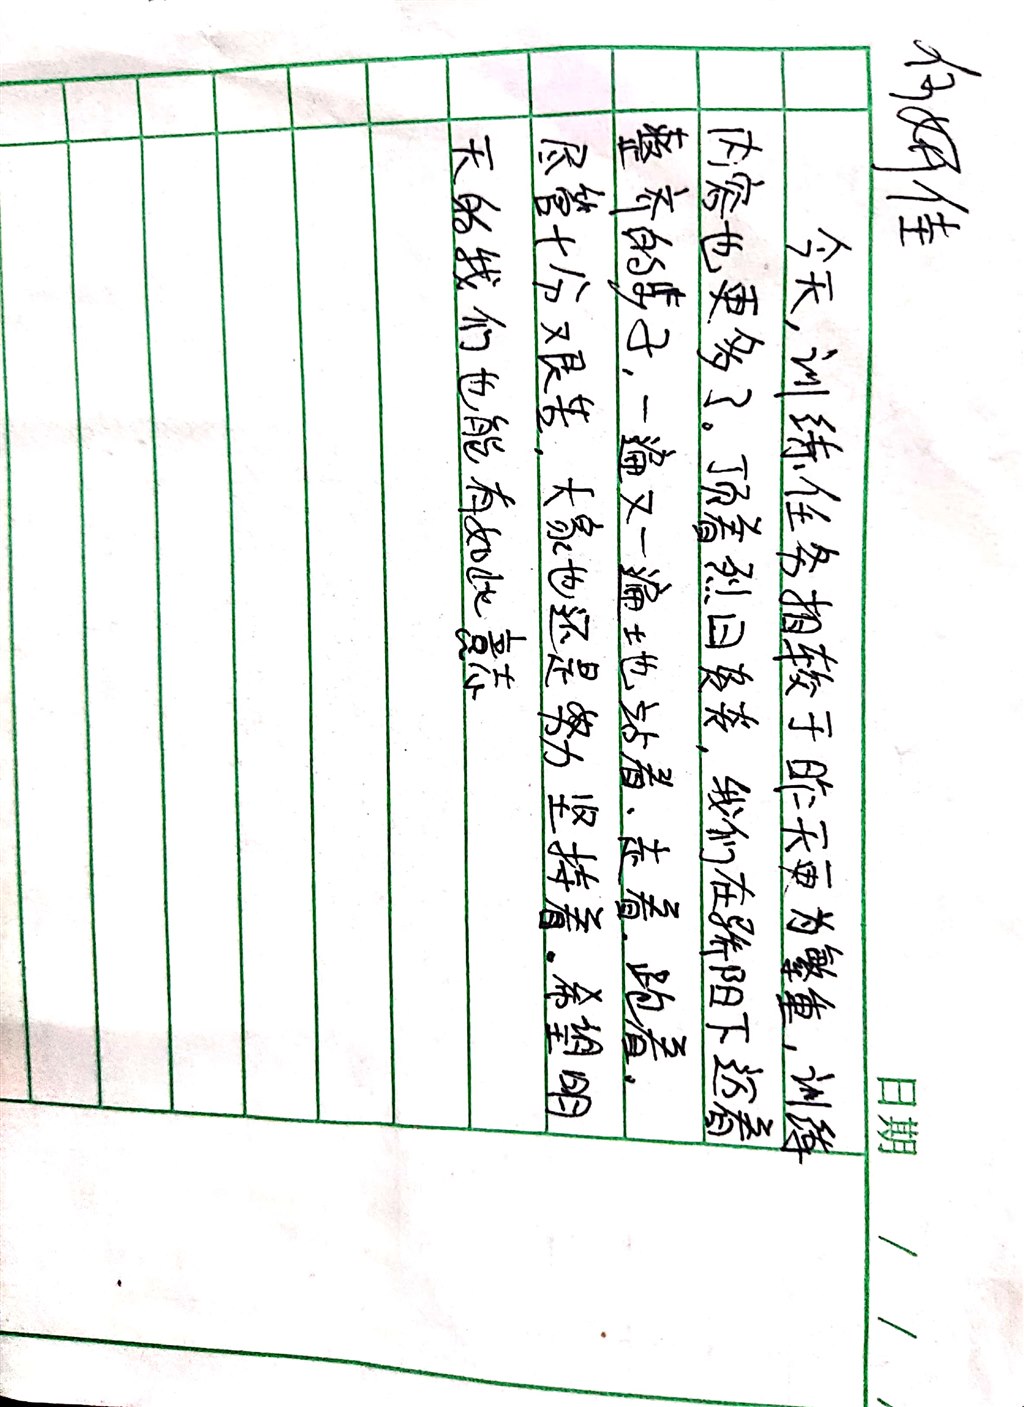 何娟佳
日期 / / /
今天,训练任务相较于昨天更为繁重,训练
内容也更多了。顶着烈日炎炎,我们在骄阳下迈着
整齐的步子,一遍又一遍地站着、走着、跑着。
尽管十分艰苦,大家也还是努力坚持着。希望明
天的我们也能有如此意志